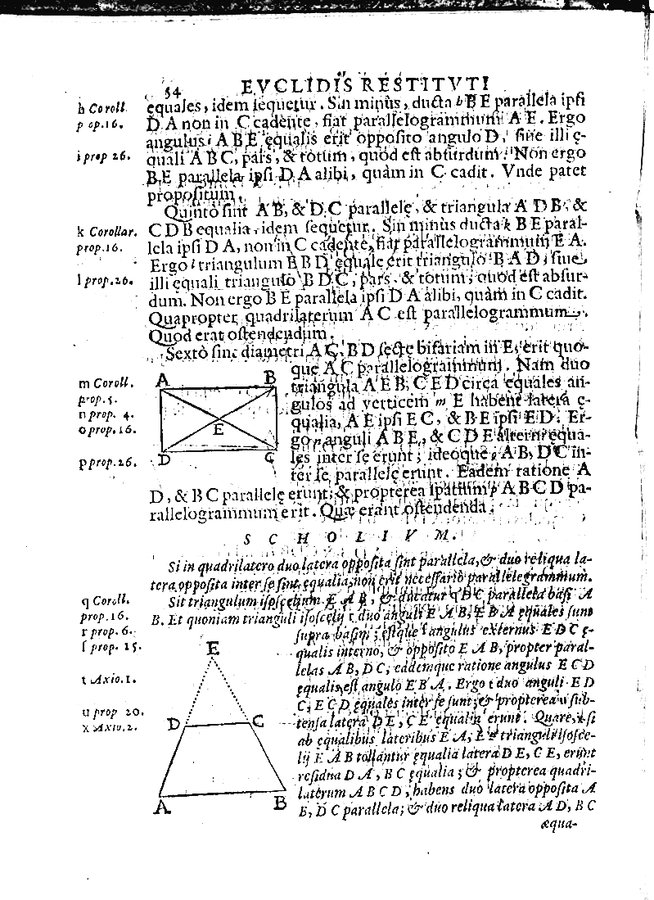 54 EVCLIDIS RESTITVTI
b Coroll.
p op. 16.
i prop 26.
equales, idem sequetur. Sin minus, ducta b B E parallela ipsi
D A non in C cadente, fiat parallelogrammum A E. Ergo
angulus i A B E equalis erit opposito angulo D, siue illi ę-
quali A B C, pars, & totum, quod est absurdum. Non ergo
B E parallela ipsi D A alibi, quàm in C cadit. Vnde patet
propositum.
k Corollar.
prop. 16.
l prop. 26.
Quintò sint A B, & D C parallelę, & triangula A D B &
C D B equalia, idem sequetur. Sin minus ducta k B E paral-
lela ipsi D A, non in C cadente, fiat parallelogrammum E A.
Ergo l triangulum E B D equale erit triangulo B A D, siue
illi equali triangulo B D C, pars & totum, quod est absur-
dum. Non ergo B E parallela ipsi D A alibi, quàm in C cadit.
Quapropter quadrilaterum A C est parallelogrammum.
Quod erat ostendendum.
m Coroll.
prop. 5.
n prop. 4.
o prop. 16.
p prop. 26.
A B
E
D C
Sextò sint diametri A C, B D sectę bifariam in E, erit quo-
que A C parallelogrammum. Nam duo
triangula A E B, C E D circa equales an-
gulos ad verticem m E habent latera ę-
qualia, A E ipsi E C, & B E ipsi E D. Er-
go n anguli A B E, & C D E alterni equa-
les inter se erunt; ideoque o A B, D C in-
ter se parallelę erunt. Eadem ratione A
D, & B C parallelę erunt; & propterea spatium p A B C D pa-
rallelogrammum erit. Quæ erant ostendenda.
S C H O L I V M.
Si in quadrilatero duo latera opposita sint parallela, & duo reliqua la-
tera opposita inter se sint equalia, non erit necessariò parallelogrammum.
q Coroll.
prop. 16.
r prop. 6.
s prop. 15.
t Axio. 1.
u prop 20.
x Axio. 2.
E
D C
A B
Sit triangulum isoscelium E A B, & ducatur q D C parallela basi A
B. Et quoniam trianguli isoscelij r duo anguli E A B, E B A equales sunt
supra basim; estque s angulus externus E D C ę-
qualis interno, & opposito E A B, propter paral-
lelas A B, D C, eademque ratione angulus E C D
equalis est angulo E B A. Ergo t duo anguli E D
C, E C D equales inter se sunt; & propterea u sub-
tensa latera D E, C E equalia erunt. Quare, x si
ab equalibus lateribus E A, E B trianguli isosce-
lij E A B tollantur equalia latera D E, C E, erunt
residua D A, B C equalia; & propterea quadri-
laterum A B C D, habens duo latera opposita A
B, D C parallela; & duo reliqua latera A D, B C
æqua-